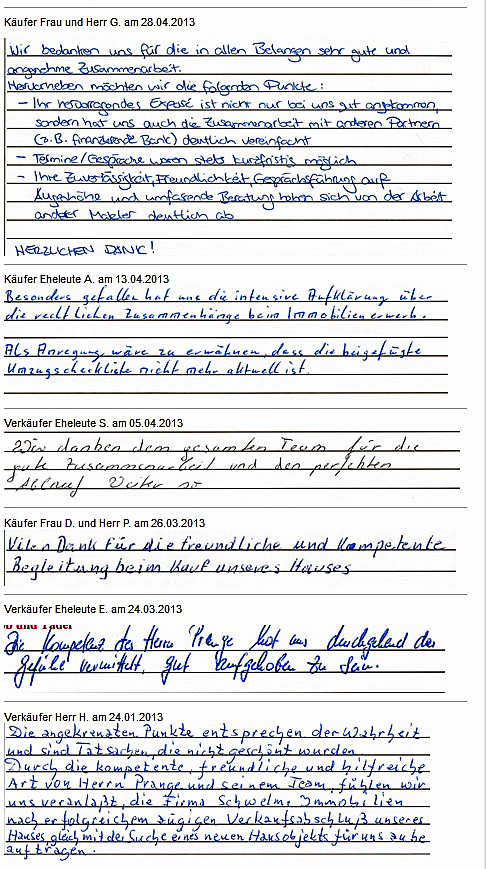 Käufer Frau und Herr G. am 28.04.2013
Wir bedanken uns für die in allen Belangen sehr gute und
angenehme Zusammenarbeit.
Hervorheben möchten wir die folgenden Punkte:
- Ihr hervorragendes Exposé ist nicht nur bei uns gut angekommen,
sondern hat uns auch die Zusammenarbeit mit anderen Partnern
(z.B. finanzierende Bank) deutlich vereinfacht
- Termine/Gespräche waren stets kurzfristig möglich
- Ihre Zuverlässigkeit, Freundlichkeit, Gesprächsführung auf
Augenhöhe und umfassende Beratung heben sich von der Arbeit
anderer Makler deutlich ab
HERZLICHEN DANK!
Käufer Eheleute A. am 13.04.2013
Besonders gefallen hat uns die intensive Aufklärung über
die rechtlichen Zusammenhänge beim Immobilienerwerb.
Als Anregung wäre zu erwähnen, dass die beigefügte
Umzugscheckliste nicht mehr aktuell ist.
Verkäufer Eheleute S. am 05.04.2013
Wir danken dem gesamten Team für die
gute Zusammenarbeit und den perfekten
Ablauf Weiter so
Käufer Frau D. und Herr P. am 26.03.2013
Vilen Dank für die freundliche und kompetente
Begleitung beim Kauf unseres Hauses
Verkäufer Eheleute E. am 24.03.2013
Die Kompetenz des Herrn Prange hat uns durchgehend das
Gefühl vermittelt, gut aufgehoben zu sein.
Verkäufer Herr H. am 24.01.2013
Die angekreuzten Punkte entsprechen der Wahrheit
und sind Tatsachen, die nicht geschönt wurden.
Durch die kompetente, freundliche und hilfreiche
Art von Herrn Prange und seinem Team, fühlen wir
uns veranlaßt, die Firma Schwelme Immobilien
nach erfolgreichem zügigen Verkaufsabschluß unseres
Hauses, gleich mit der Suche eines neuen Hausobjekts für uns zu be
auftragen.